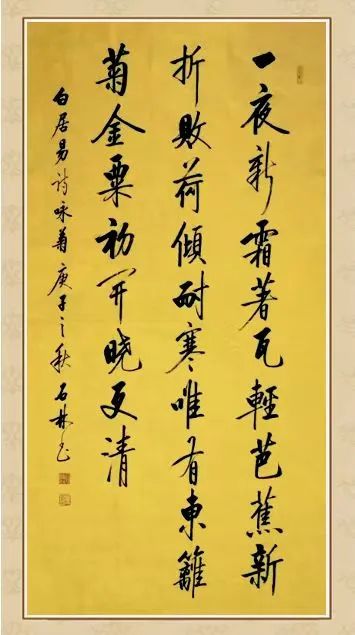 一夜新霜著瓦輕芭蕉新
折敗荷傾耐寒唯有東籬
菊金粟初开曉更清
白居易诗咏菊庚子之秋石林书